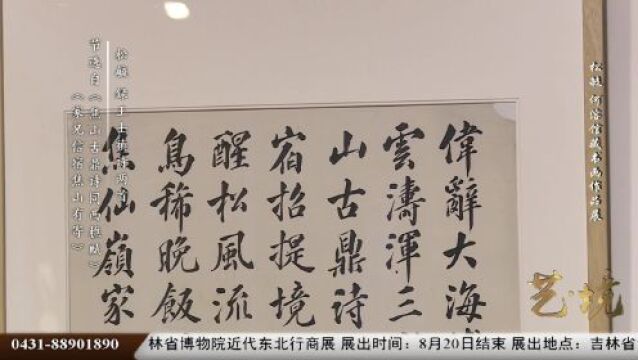 松毓 何溶馆藏书画作品展
偉辭大海
雲濤渾三
山古鼎詩
宿招提境
醒松風流
鳥稀晚飯
焦仙嶺家
节选自《焦山古鼎诗同西樵赋》
艺境
0431-88901890
林省博物院近代东北行商展 展出时间：8月20日结束 展出地点：吉林省